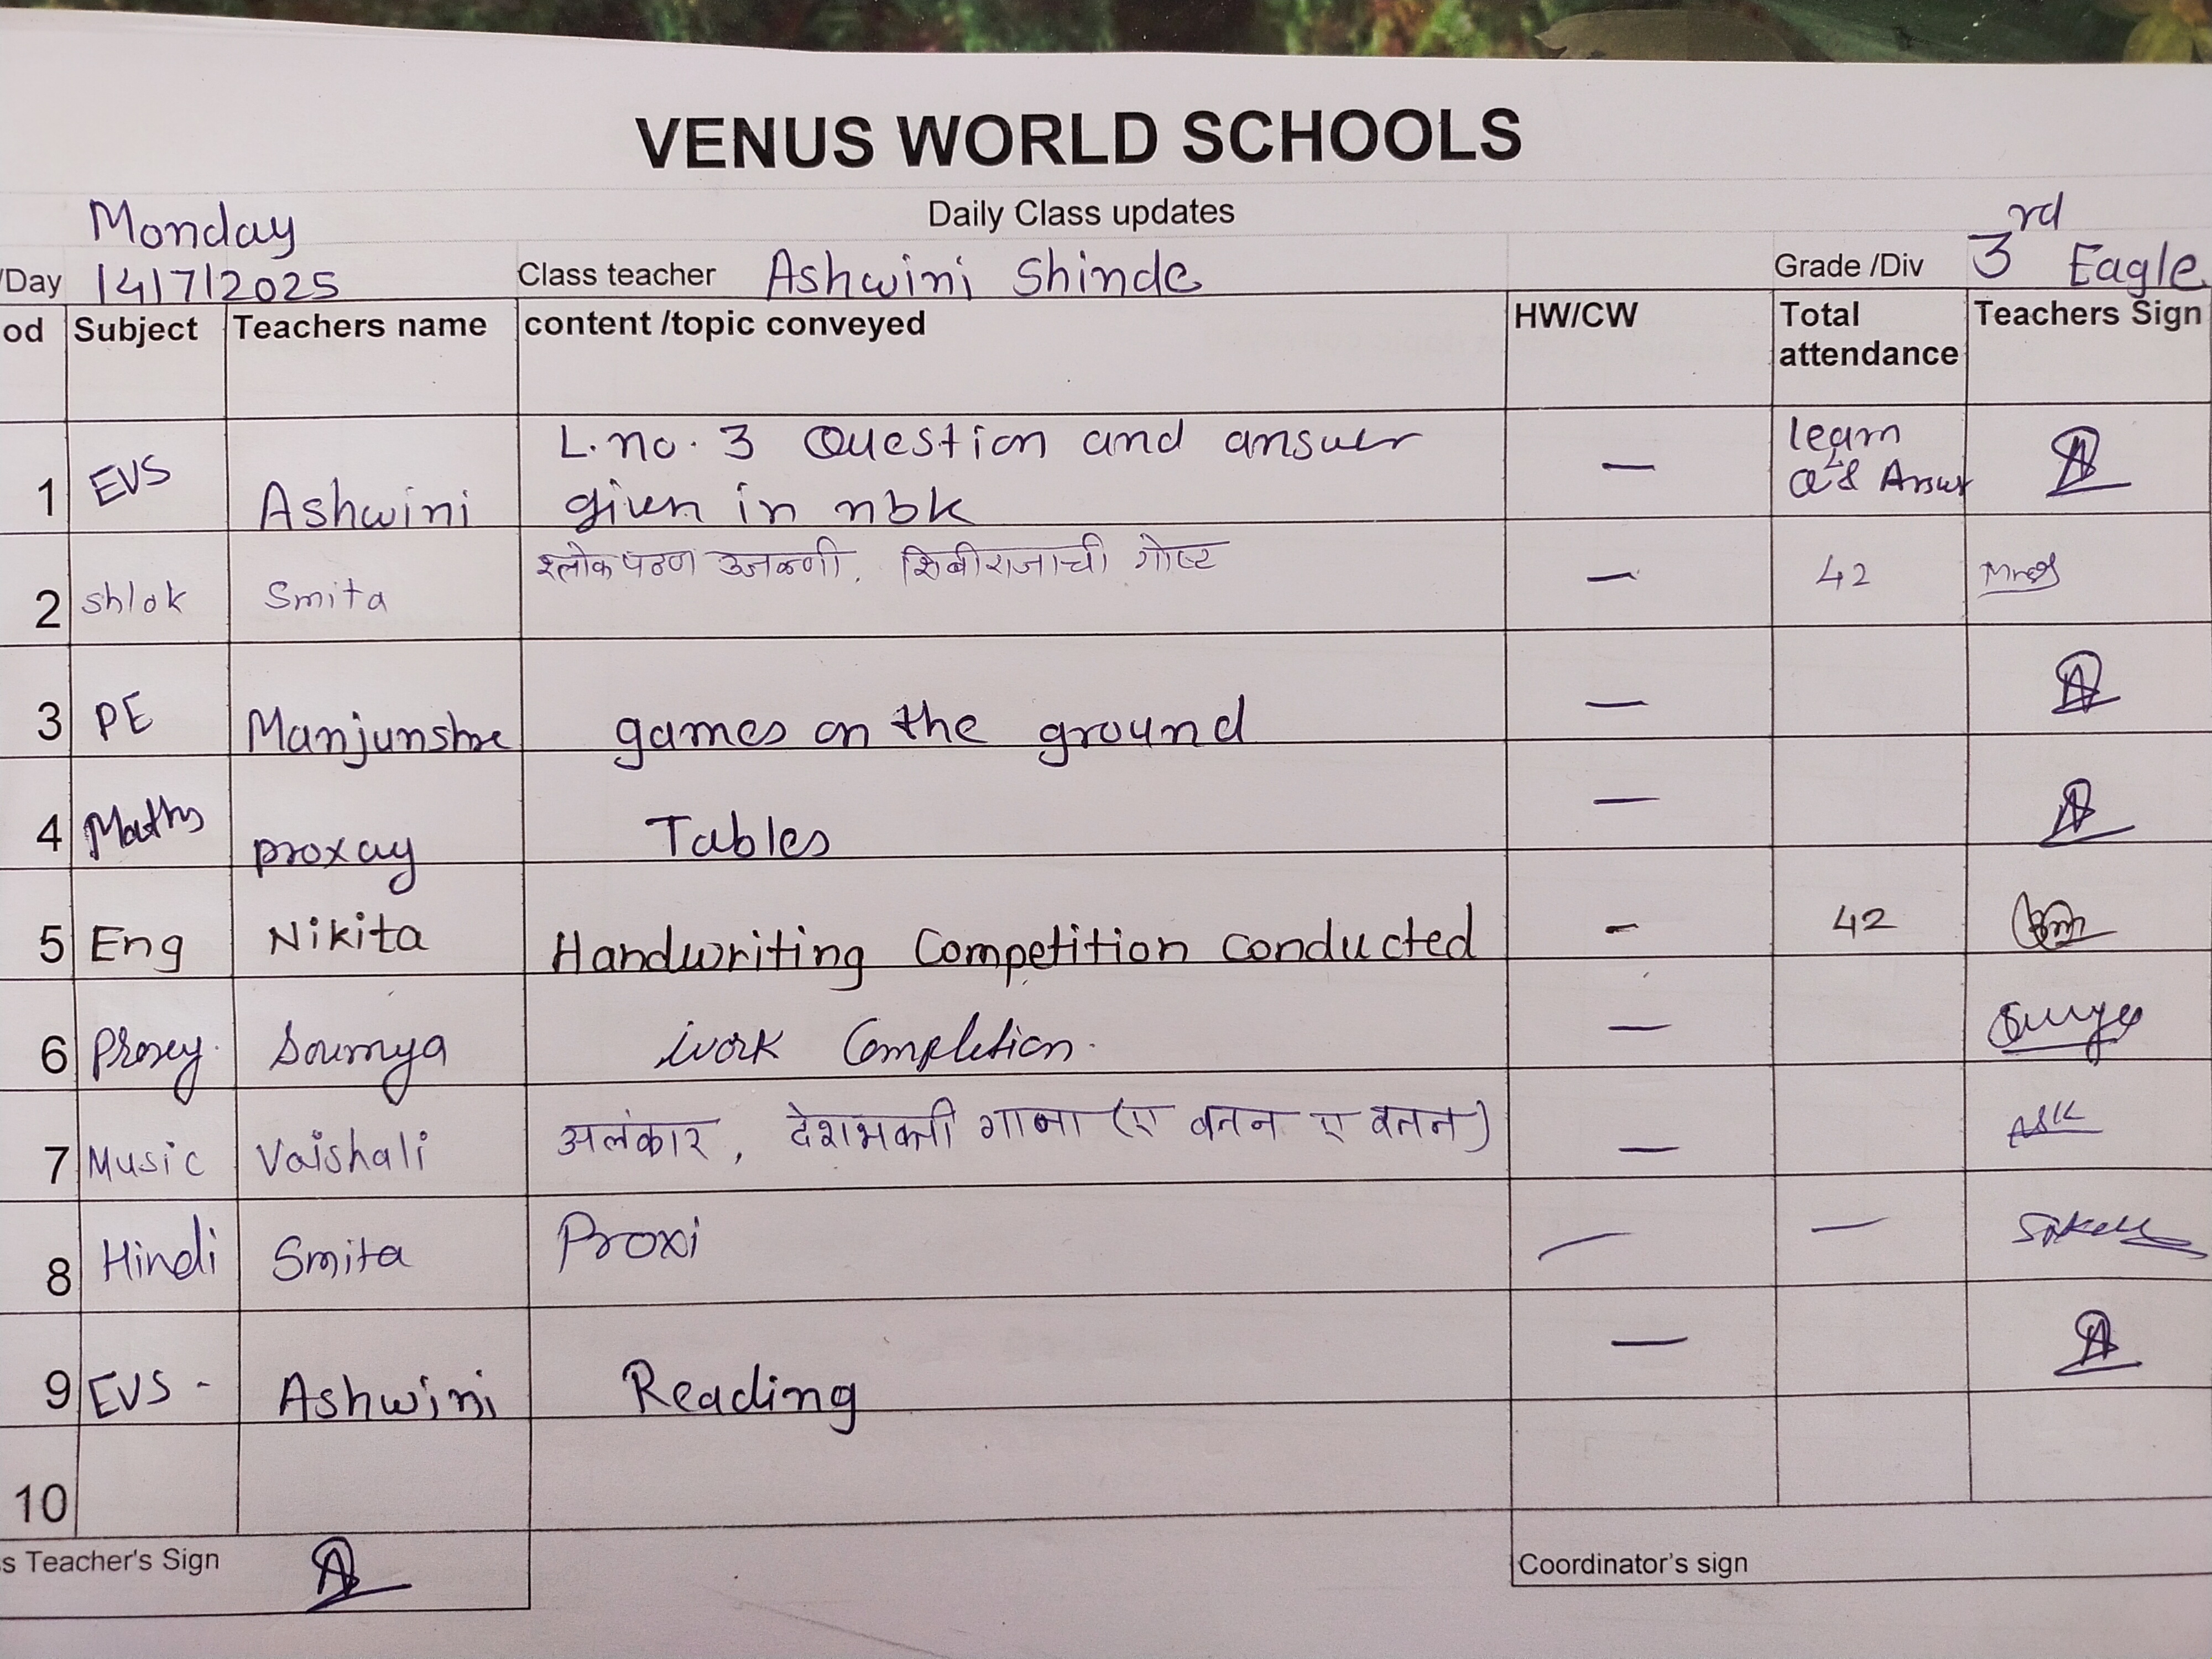 VENUS WORLD SCHOOLS
Daily Class updates
Monday
/Day 14/7/2025 Class teacher Ashwini Shinde Grade /Div 3rd Eagle
od Subject Teachers name content /topic conveyed HW/CW Total attendance Teachers Sign
1 EVS Ashwini L.no. 3 Question and answer — learn
given in nbk Answ
2 shlok Smita श्लोक पठण उजळणी, शिबीराजाची गोष्ट — 42
3 PE Manjunshre games on the ground —
4 Maths proxay Tables —
5 Eng Nikita Handwriting Competition conducted - 42
6 Proxey. Soumya work Completion. —
7 Music Vaishali अलंकार, देशभक्ती गाना (ए वतन ए वतन) —
8 Hindi Smita Proxi — —
9 EVS - Ashwini Reading —
10
s Teacher's Sign Coordinator's sign